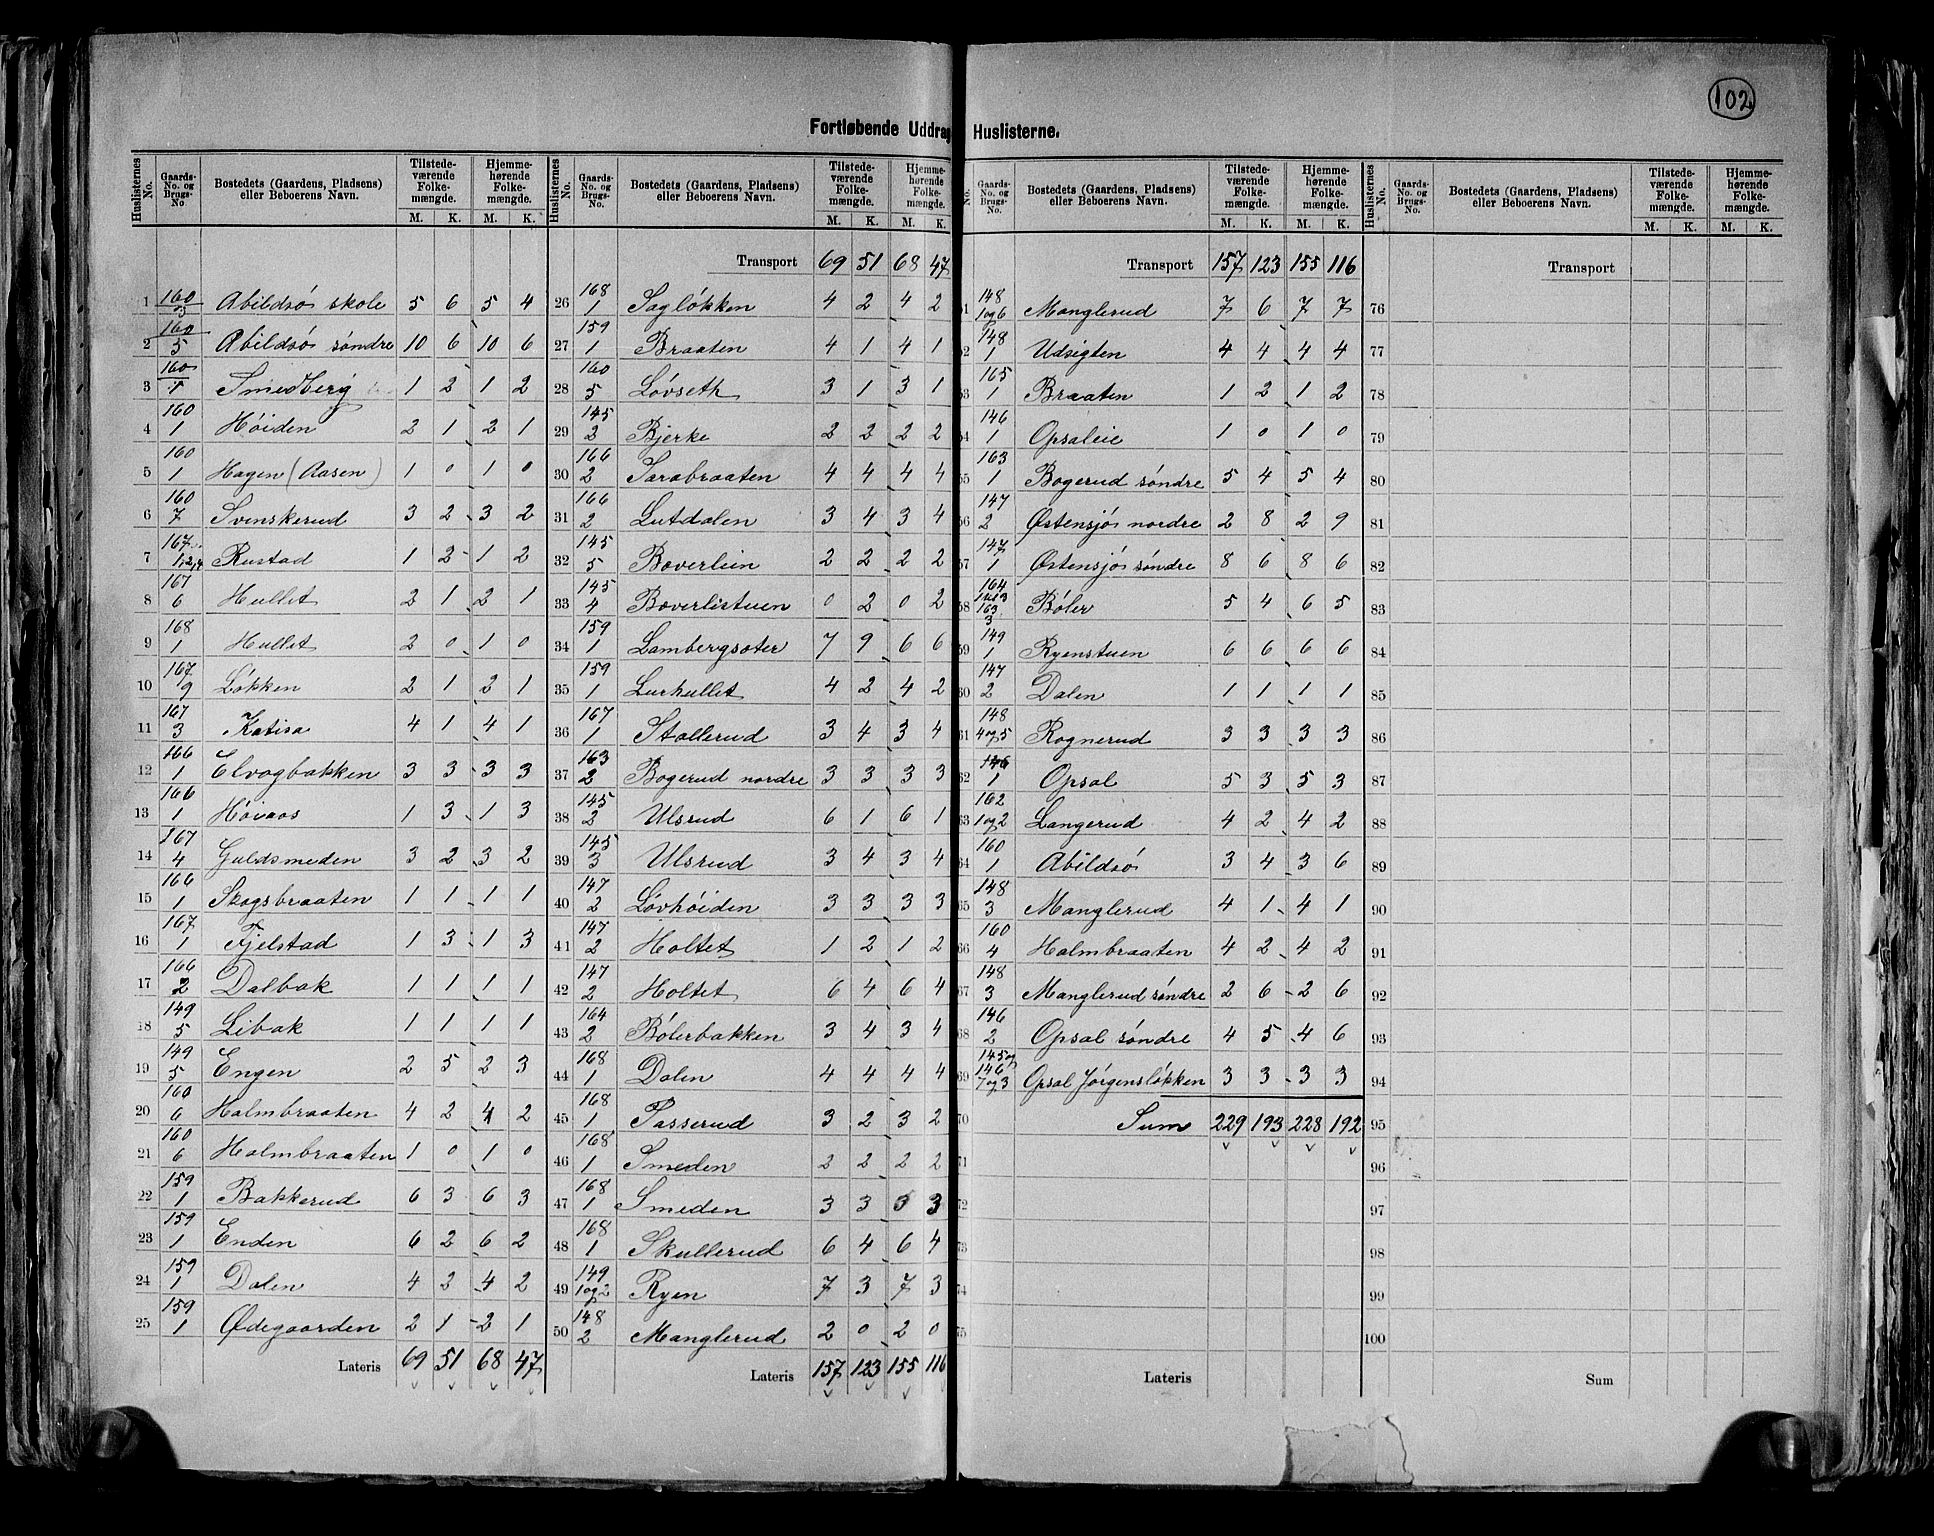 102
Fortløbende Uddrag Huslisterne.
Huslisternes No. | Gaards-No. og Brugs-No. | Bostedets (Gaardens, Pladsens) eller Beboerens Navn. | Tilstedeværende Folkemængde. M. K. | Hjemmehørende Folkemængde. M. K.
1 160/5 Abildsø skole 5 6 5 4
2 160/5 Abildsø søndre 10 6 10 6
3 160/1 Smedberg 1 2 1 2
4 160/1 Høiden 2 1 2 1
5 160/1 Hagen (Aasen) 1 0 1 0
6 160/7 Svenskerud 3 2 3 2
7 167/1,2,4 Rustad 1 2 1 2
8 167/6 Hullet 2 1 2 1
9 168/1 Hullet 2 0 1 0
10 167/9 Løkken 2 1 2 1
11 167/3 Katisa 4 1 4 1
12 166/1 Elvagbakken 3 3 3 3
13 166/1 Høiaas 1 3 1 3
14 167/4 Guldsmeden 3 2 3 2
15 166/1 Skogsbraaten 1 1 1 1
16 167/1 Fjelstad 1 3 1 3
17 166/2 Dalbak 1 1 1 1
18 149/5 Libak 1 1 1 1
19 149/5 Engen 2 5 2 3
20 160/6 Halmbraaten 4 2 4 2
21 160/6 Halmbraaten 1 0 1 0
22 159/1 Bakkerud 6 3 6 3
23 159/1 Enden 6 2 6 2
24 159/1 Dalen 4 2 4 2
25 159/1 Ødegaarden 2 1 2 1
Lateris 69 51 68 47
Huslisternes No. | Gaards-No. og Brugs-No. | Bostedets (Gaardens, Pladsens) eller Beboerens Navn. | Tilstedeværende Folkemængde. M. K. | Hjemmehørende Folkemængde. M. K.
Transport 69 51 68 47
26 168/1 Sagløkken 4 2 4 2
27 159/1 Braaten 4 1 4 1
28 160/5 Løvseth 3 1 3 1
29 145/2 Bjerke 2 2 2 2
30 166/2 Sarabraaten 4 4 4 4
31 166/2 Lutdalen 3 4 3 4
32 145/5 Boverliin 2 2 2 2
33 145/4 Boverlistuen 0 2 0 2
34 159/1 Lambergsæter 7 9 6 6
35 159/1 Lurhullet 4 2 4 2
36 167/1 Stallerud 3 4 3 4
37 163/2 Bogerud nordre 3 3 3 3
38 145/2 Ulsrud 6 1 6 1
39 145/3 Ulsrud 3 4 3 4
40 147/2 Løvhøiden 3 3 3 3
41 147/2 Holtet 1 2 1 2
42 147/2 Holtet 6 4 6 4
43 164/2 Bølerbakken 3 4 3 4
44 168/1 Dalen 4 4 4 4
45 168/1 Passerud 3 2 3 2
46 168/1 Smeden 2 2 2 2
47 168/1 Smeden 3 3 3 3
48 168/1 Skullerud 6 4 6 4
49 149/1og2 Ryen 7 3 7 3
50 148/2 Manglerud 2 0 2 0
Lateris 157 123 155 116
No. | Gaards-No. og Brugs-No. | Bostedets (Gaardens, Pladsens) eller Beboerens Navn. | Tilstedeværende Folkemængde. M. K. | Hjemmehørende Folkemængde. M. K.
Transport 157 123 155 116
51 148/1og6 Manglerud 7 6 7 7
52 148/1 Udsigten 4 4 4 4
53 165/1 Braaten 1 2 1 2
54 146/1 Opsaleie 1 0 1 0
55 163/1 Bogerud søndre 5 4 5 4
56 147/2 Østensjø nordre 2 8 2 9
57 147/1 Østensjø søndre 8 6 8 6
58 164 163/3 Bøler 5 4 6 5
59 149/1 Ryenstuen 6 6 6 6
60 147/2 Dalen 1 1 1 1
61 148/4og5 Rognerud 3 3 3 3
62 146/1 Opsal 5 3 5 3
63 162/1og2 Langerud 4 2 4 2
64 160/1 Abildsø 3 4 3 6
65 148/3 Manglerud 4 1 4 1
66 160/4 Halmbraaten 4 2 4 2
67 148/3 Manglerud søndre 2 6 2 6
68 146/2 Opsal søndre 4 5 4 6
69 145og146/7og3 Opsal Jørgensløkken 3 3 3 3
70 Sum 229 193 228 192
71
72
73
74
75
Lateris
Huslisternes No. | Gaards-No. og Brugs-No. | Bostedets (Gaardens, Pladsens) eller Beboerens Navn. | Tilstedeværende Folkemængde. M. K. | Hjemmehørende Folkemængde. M. K.
Transport
76
77
78
79
80
81
82
83
84
85
86
87
88
89
90
91
92
93
94
95
96
97
98
99
100
Sum